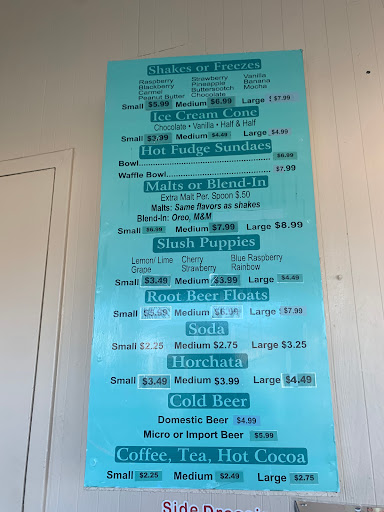 Shakes or Freezes
Raspberry Strawberry Vanilla
Blackberry Pineapple Banana
Carmel Butterscotch Mocha
Peanut Butter Chocolate
Small $5.99 Medium $6.99 Large $7.99
Ice Cream Cone
Chocolate • Vanilla • Half & Half
Small $3.99 Medium $4.49 Large $4.99
Hot Fudge Sundaes
Bowl........................................ $6.99
Waffle Bowl................................ $7.99
Malts or Blend-In
Extra Malt Per. Spoon $.50
Malts: Same flavors as shakes
Blend-In: Oreo, M&M
Small $6.99 Medium $7.99 Large $8.99
Slush Puppies
Lemon/ Lime Cherry Blue Raspberry
Grape Strawberry Rainbow
Small $3.49 Medium $3.99 Large $4.49
Root Beer Floats
Small $5.99 Medium $6.99 Large $7.99
Soda
Small $2.25 Medium $2.75 Large $3.25
Horchata
Small $3.49 Medium $3.99 Large $4.49
Cold Beer
Domestic Beer $4.99
Micro or Import Beer $5.99
Coffee, Tea, Hot Cocoa
Small $2.25 Medium $2.49 Large $2.75
Side